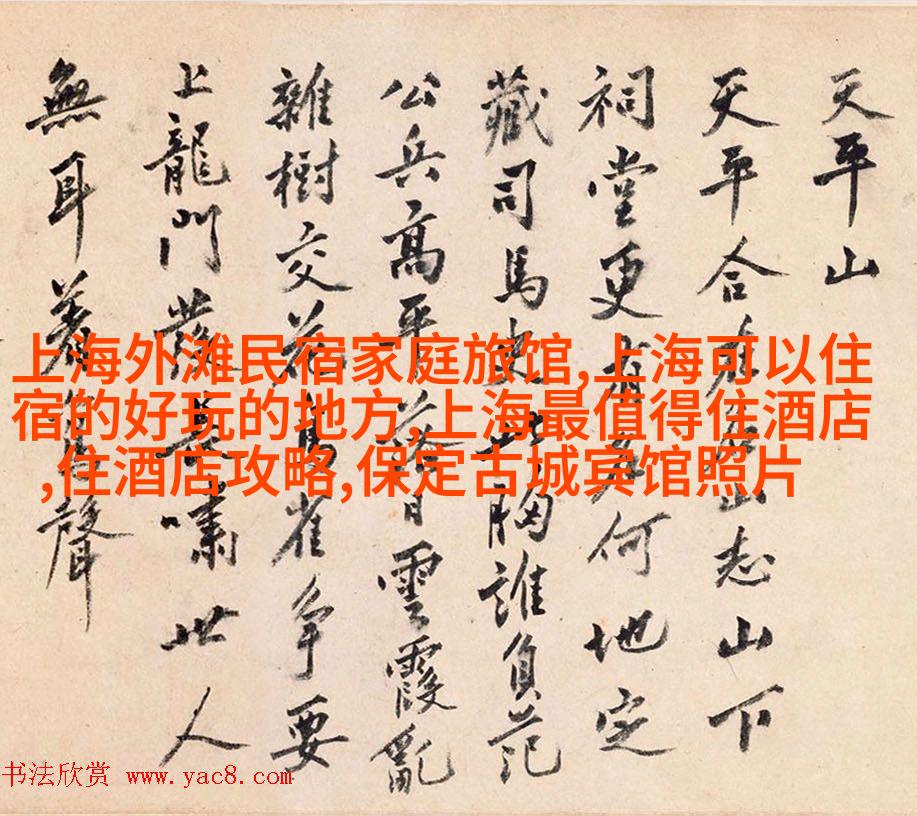 天平山
天平合 山志山下
祠堂更 何地定
藏司馬史 胸誰負范
公兵高平 雲霞亂
雜樹交花 雀争要
上龍門發 嘯世人
無耳著 聲
上海外滩民宿家庭旅馆,上海可以住
宿的好玩的地方,上海最值得住酒店
,住酒店攻略,保定古城宾馆照片
书法欣赏 www.yac8.com